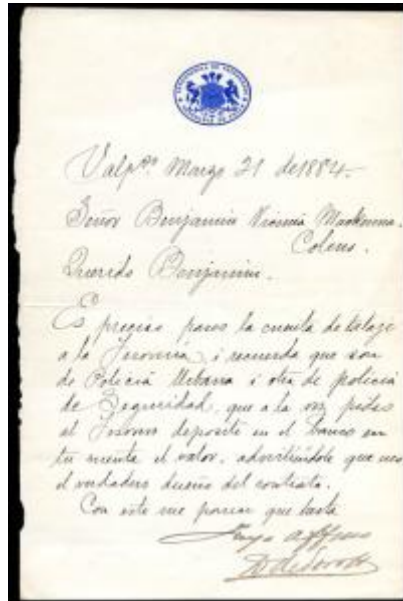 Valpº. Marzo 21 de 1884.
Señor Benjamin Vicuña Mackenna.
Colmo.
Querido Benjamin.
Es preciso pases la cuenta de talaje
a la Tesorería, i recuerda que son
de Policía Urbana i otra de policía
de Seguridad, que a la vez pidas
al Tesorero deposite en el banco en
tu cuenta el valor, advirtiéndole que eres
el verdadero dueño del contrato.
Con esto me parece que basta